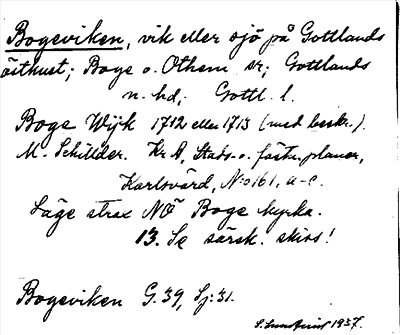 Bogeviken, vik eller sjö på Gottlands
östkust; Boge o. Othem sr; Gottlands
n. hd, Gottl. l.
Boge Wijk 1712 eller 1713 (med beskr.).
M. Schillder. Kr A, Stads- o. fästn. planer,
Karlsvärd, N:o 161, a-c.
Läge strax NÖ Boge kyrka.
13. Se särsk. skiss!
Bogeviken G. 39, Sj: 31.
1937.